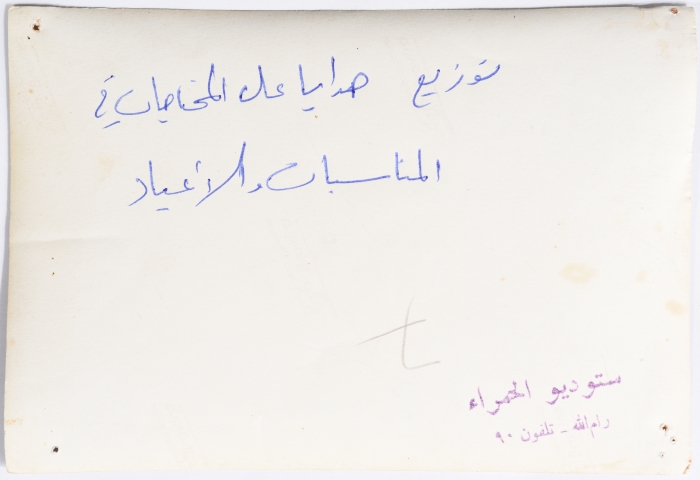 توزيع هدايا على المحتاجات في
المناسبات والأعياد
ستوديو الحمراء
رام الله - تلفون ٩٠